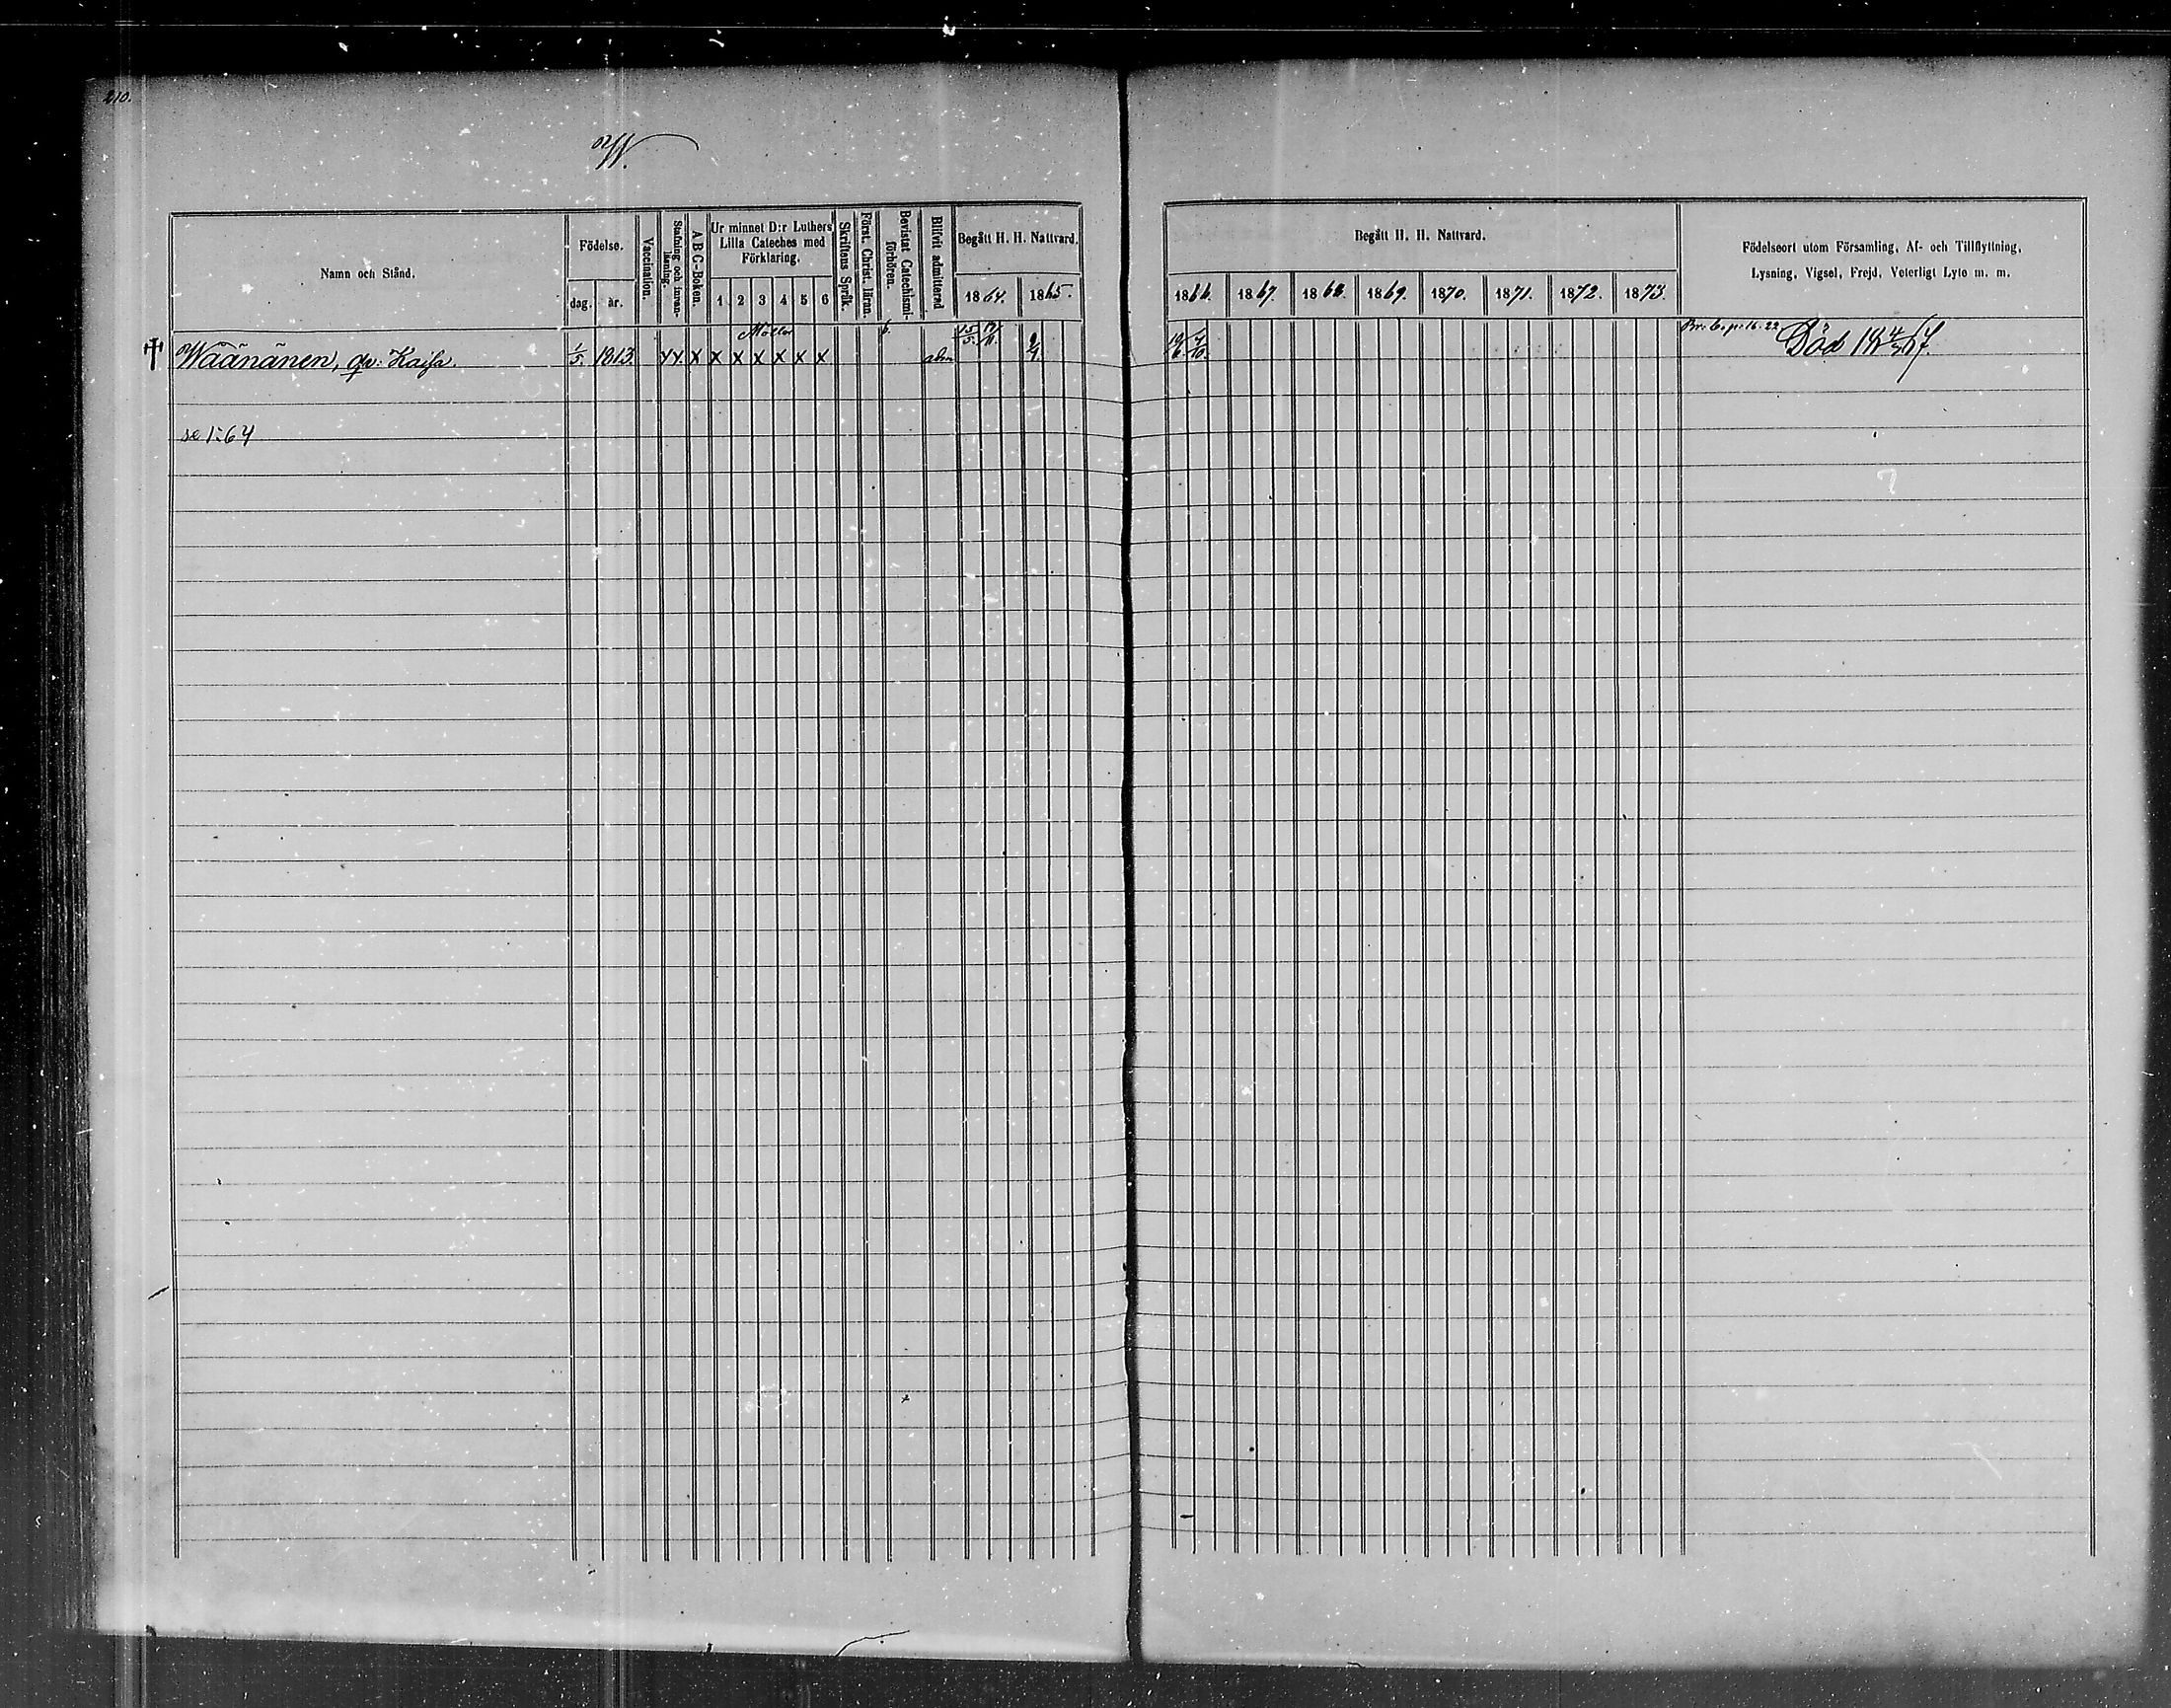 210.
W.
Namn och Stånd.
Födelse.
dag.
år.
Vaccination.
Stafning och innan-läsning.
A B C-Boken.
Ur minnet D:r Luthers
Lilla Cateches med
Förklaring.
1 2 3 4 5 6
Skriftens Språk.
Först. Christ. läran.
Bevistat Catechismi-förhören.
Blifvit admitterad
Begått H. H. Nattvard.
1864. 1865.
Begått H. H. Nattvard.
1866. 1867. 1868. 1869. 1870. 1871. 1872. 1873.
Födelseort utom Församling, Af- och Tillflyttning,
Lysning, Vigsel, Frejd, Veterligt Lyte m. m.
Wäänänen, qv: Kaisa. 1/5. 1813. x x x x x x x b. adm 15/5. 9/4. Br. b. p. 16. 22 Död 18 4/3 67.
se 1:64